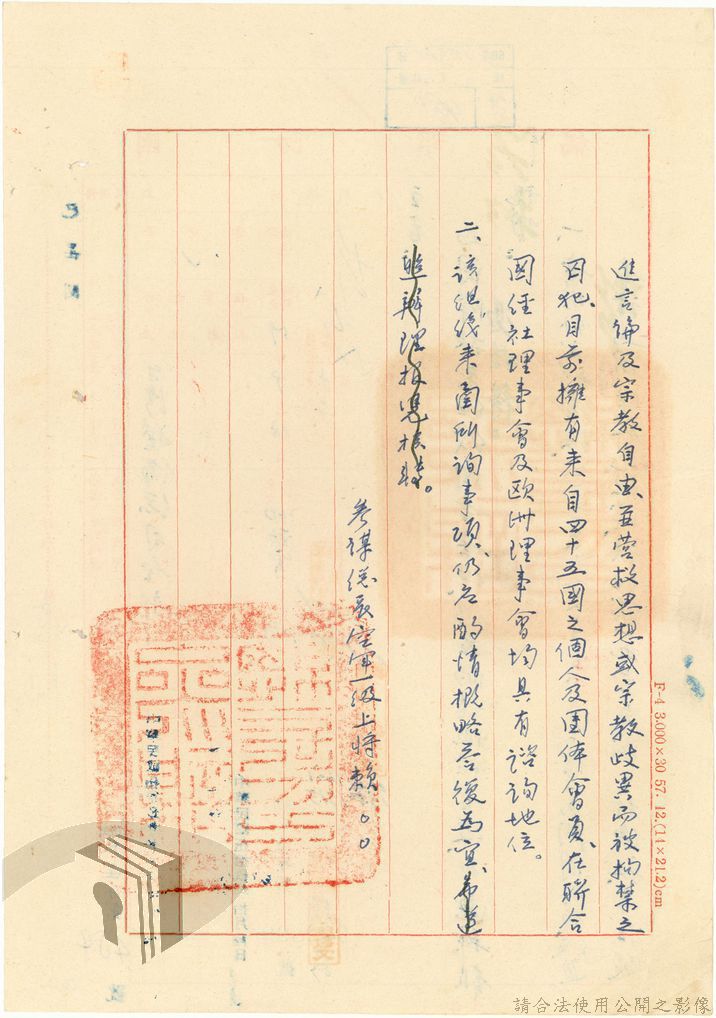 進言論及宗教自由並營救思想或宗教歧異而被拘禁之
囚犯、目前擁有來自四十五國之個人及團体會員、在聯合
國經社理事會及歐洲理事會均具有諮詢地位。
二、該組織來函所詢事項、仍宜酌情概略答復為宜、希逕
辦理報
參謀總長空軍一級上將賴○○
F-4 3,000×30 57. 12.(14×21.2)cm
請合法使用公開之影像